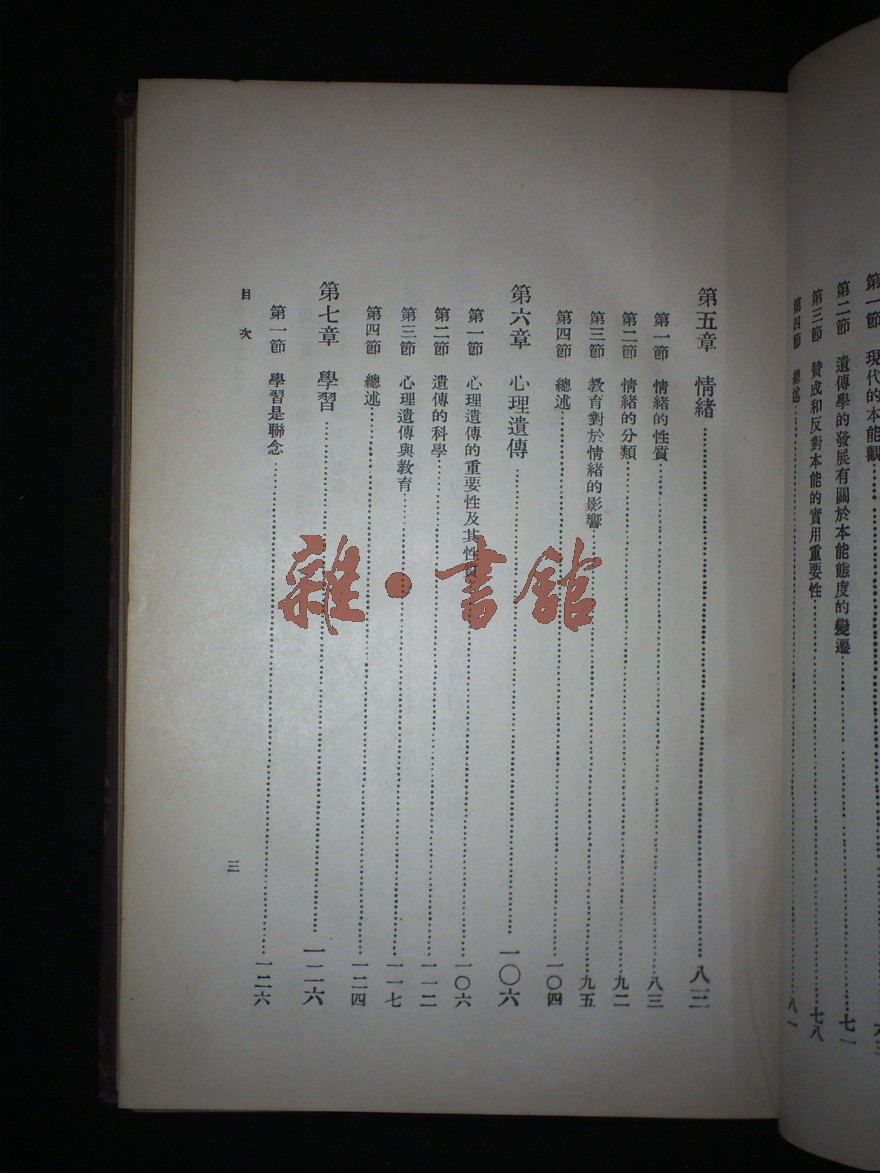 第一節 現代的本能觀……六三
第二節 遺傳學的發展有關於本能態度的變遷……七一
第三節 贊成和反對本能的實用重要性……七八
第四節 總述……八一
第五章 情緒……八三
第一節 情緒的性質……八三
第二節 情緒的分類……九二
第三節 教育對於情緒的影響……九五
第四節 總述……一〇四
第六章 心理遺傳……一〇六
第一節 心理遺傳的重要性及其性質……一〇六
第二節 遺傳的科學……一一二
第三節 心理遺傳與教育……一一七
第四節 總述……一二四
第七章 學習……一二六
第一節 學習是聯念……一二六
目次
三
雜·書館